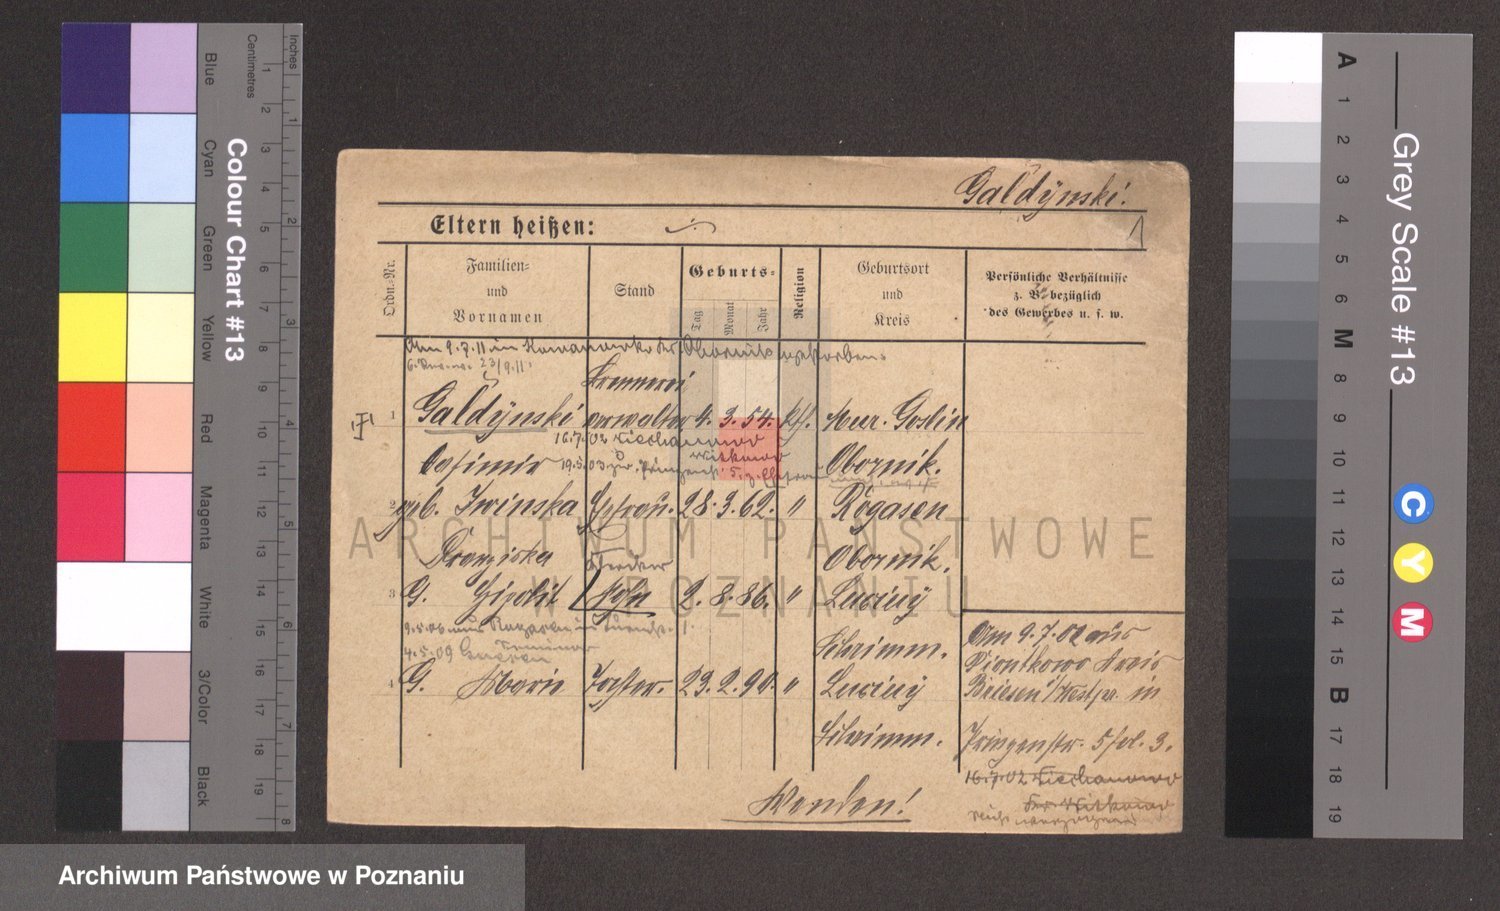 Galdÿnski.
Eltern heißen:
1
Ordn=Nr.
Familien=
und
Vornamen
Stand
Geburts=
Tag
Monat
Jahr
Religion
Geburtsort
und
Kreis
Persönliche Verhältnisse
z. B. bezüglich
des Gewerbes u. s. w.
Am 9.7.11 in
Obornik gestorben.
23/9.11
1 Galdÿnski verwalter 4. 3. 54. kth. Mur. Goslin
16.7.02 Ciechanowo
Witkowo
Casimir
19.5.03
Obornik.
2 geb. Iwinska Ehefrau. 28. 3. 62. " Rogasen
Franziska
Obornik.
3 G. Hipolit Sohn 2. 8. 86. " Lucinÿ
Schrimm.
4.5.09 Gnesen
4 G. Marie Tochter. 23. 2. 90. " Lucinÿ
Schrimm.
Am 9.7.02 aus
Piontkowo Kreis
Briesen Westpr. in
Prinzenstr. 5
16.7.02 Ciechanowo
Witkowo
Wenden!
ARCHIWUM PAŃSTWOWE
W POZNANIU
Colour Chart #13
Blue
Cyan
Green
Yellow
Red
Magenta
White
3/Color
Black
Centimetres
Inches
1 2 3 4 5 6 7 8 9 10 11 12 13 14 15 16 17 18 19
1 2 3 4 5 6 7 8
Grey Scale #13
A 1 2 3 4 5 6 M 8 9 10 11 12 13 14 15 B 17 18 19
C
Y
M
Archiwum Państwowe w Poznaniu